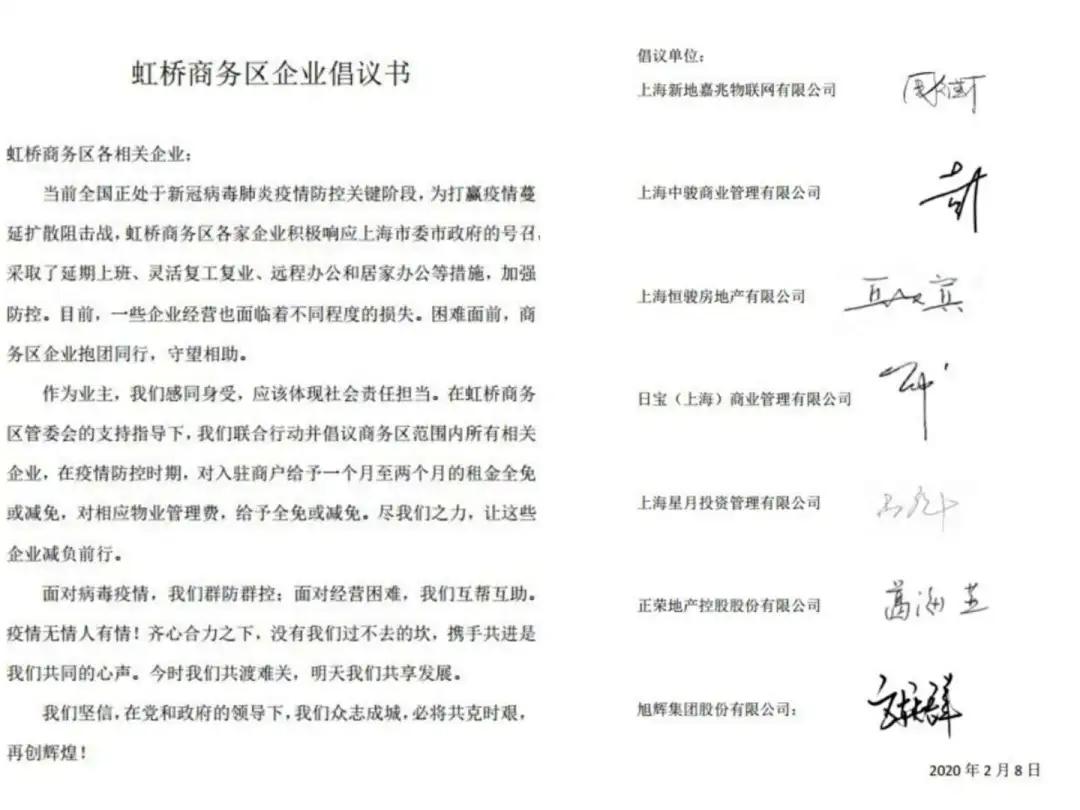 虹桥商务区企业倡议书
虹桥商务区各相关企业：
当前全国正处于新冠病毒肺炎疫情防控关键阶段，为打赢疫情蔓
延扩散阻击战，虹桥商务区各家企业积极响应上海市委市政府的号召，
采取了延期上班、灵活复工复业、远程办公和居家办公等措施，加强
防控。目前，一些企业经营也面临着不同程度的损失。困难面前，商
务区企业抱团同行，守望相助。
作为业主，我们感同身受，应该体现社会责任担当。在虹桥商务
区管委会的支持指导下，我们联合行动并倡议商务区范围内所有相关
企业，在疫情防控时期，对入驻商户给予一个月至两个月的租金全免
或减免，对相应物业管理费，给予全免或减免。尽我们之力，让这些
企业减负前行。
面对病毒疫情，我们群防群控；面对经营困难，我们互帮互助。
疫情无情人有情！齐心合力之下，没有我们过不去的坎，携手共进是
我们共同的心声。今时我们共渡难关，明天我们共享发展。
我们坚信，在党和政府的领导下，我们众志成城，必将共克时艰，
再创辉煌！
倡议单位：
上海新地嘉兆物联网有限公司
上海中骏商业管理有限公司
上海恒骏房地产有限公司
日宝（上海）商业管理有限公司
上海星月投资管理有限公司
正荣地产控股股份有限公司
旭辉集团股份有限公司：
2020 年 2 月 8 日